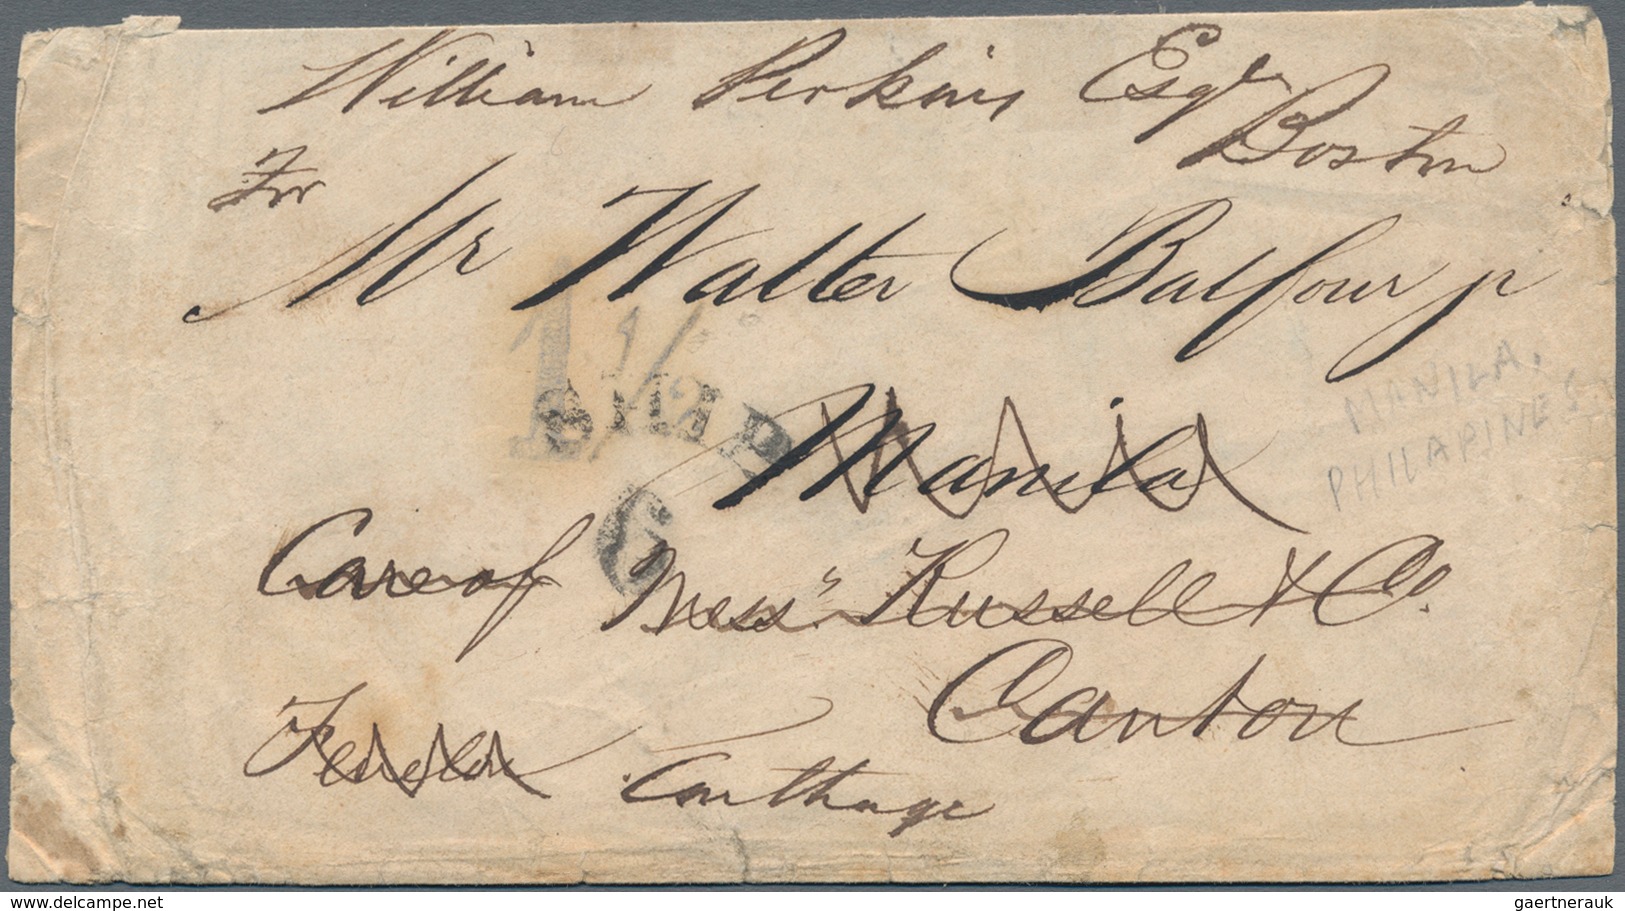 William Perkins Esqr
Boston
For
Mr Walter Balfour jr
1 1/2
SHIP
6
Manila
MANILA.
PHILAPINES
Care of Messrs. Russell & Co.
Canton
Carthage
www.delcampe.net
gaertnerauk